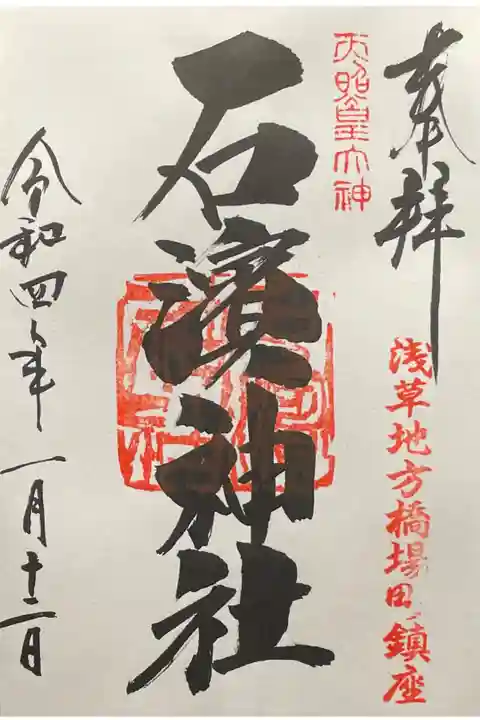 奉拝
浅草地方橋場田ノ鎮座
天照皇大神
石濱神社
令和四年一月十二日